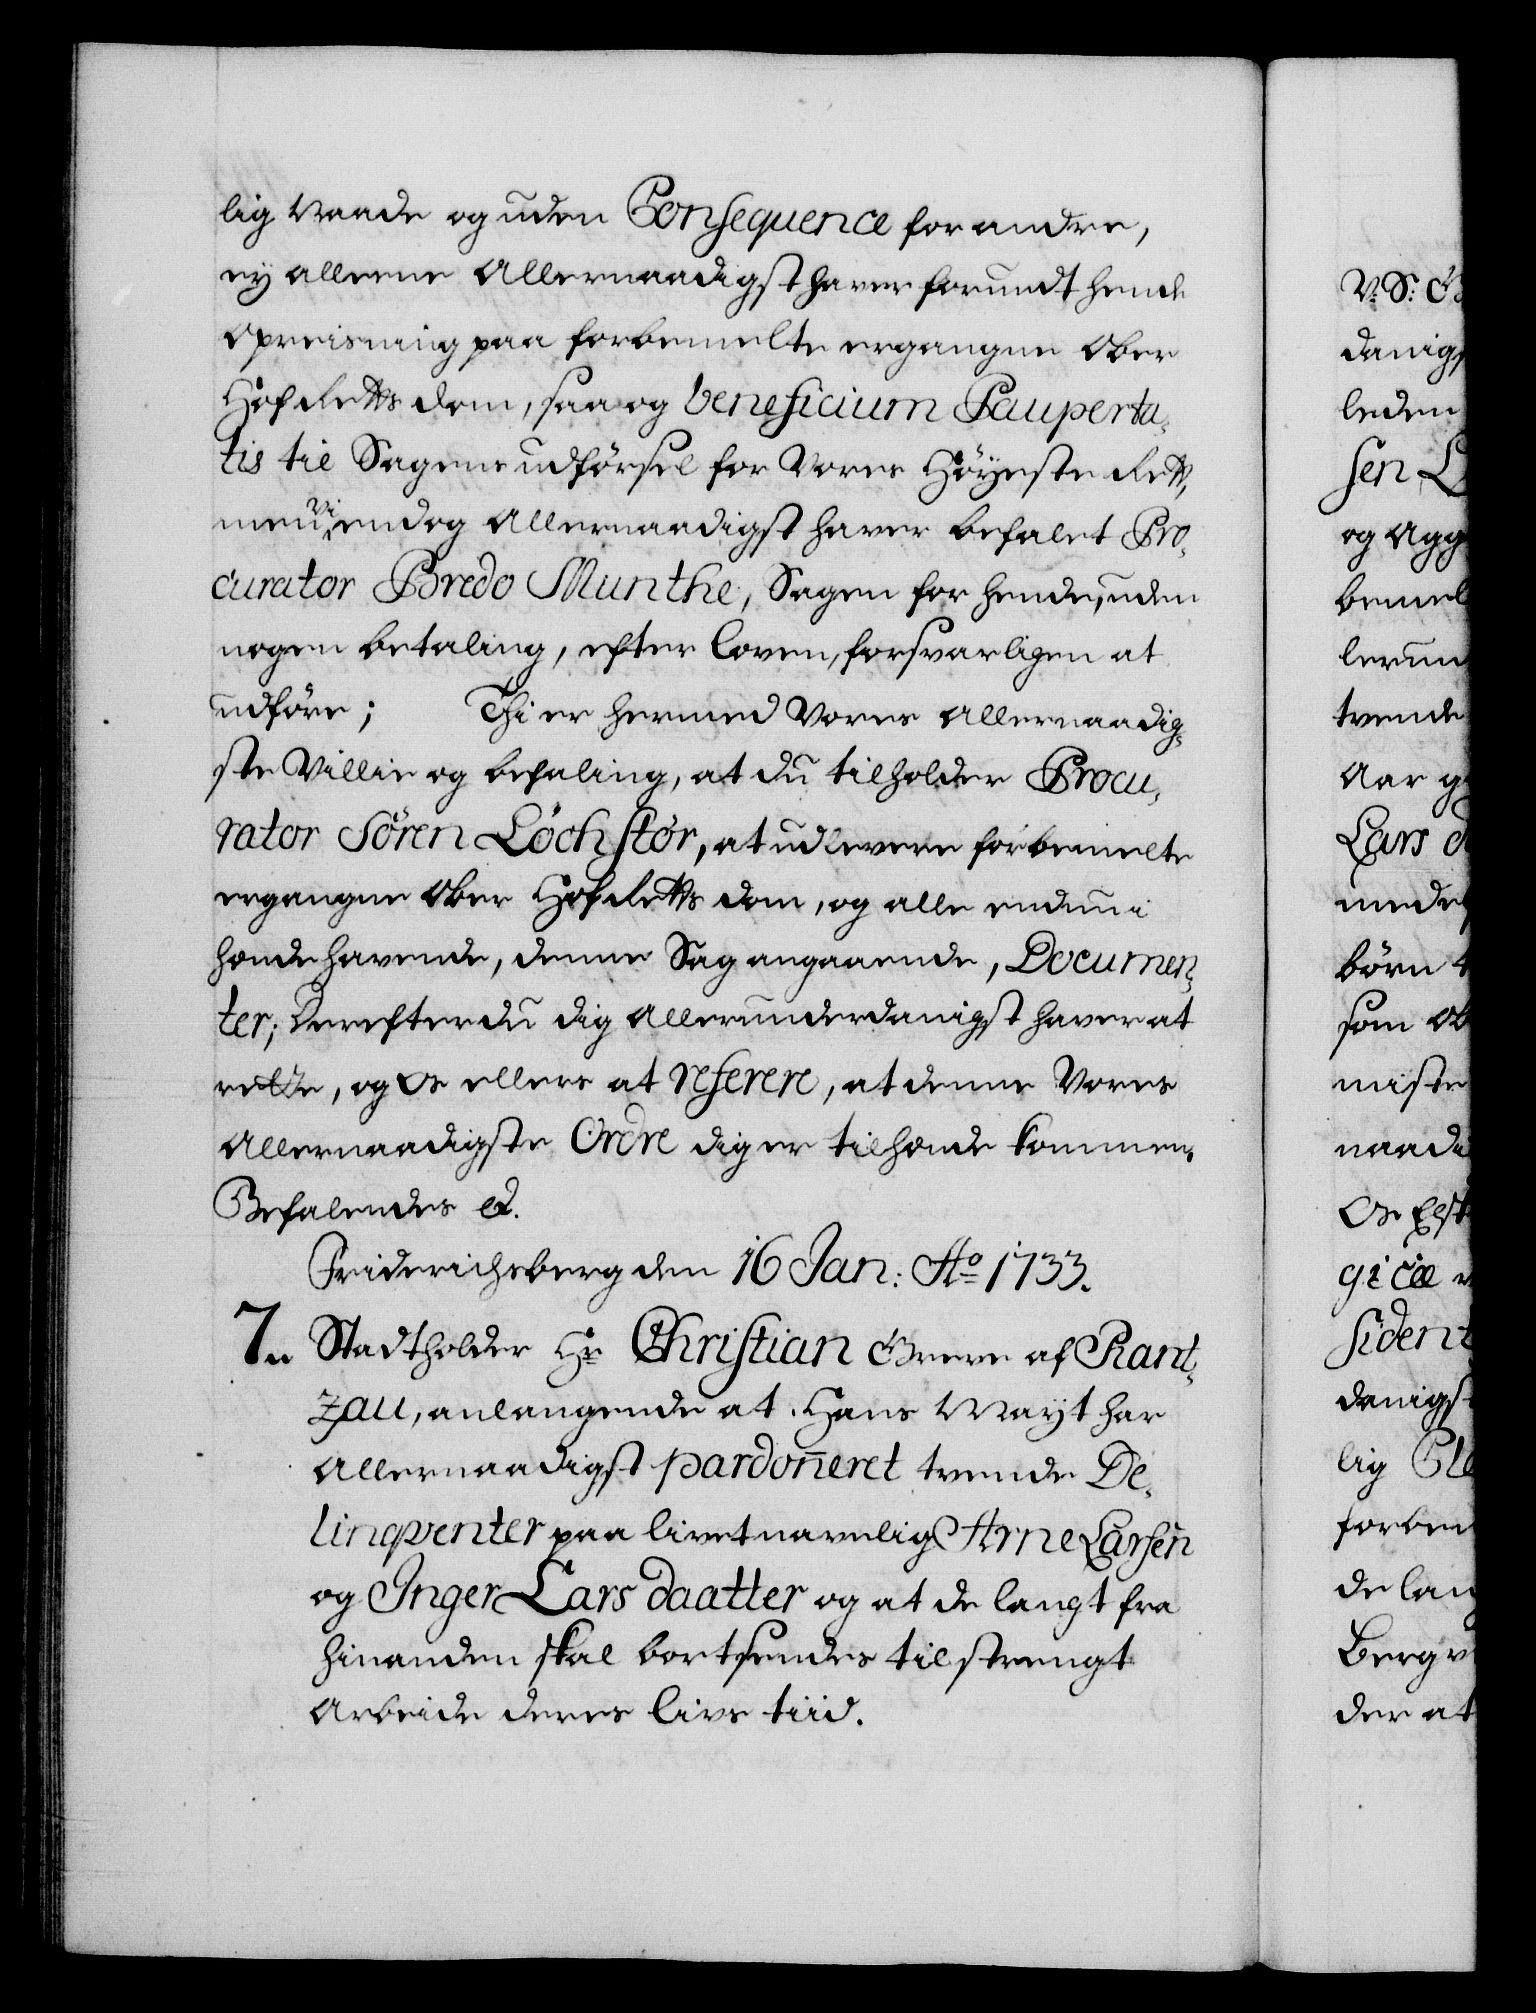 lig Naade og uden Consequence for andre,
ey alleene Allernaadigst haver forundt hende
Opreisning paa forbemelte ergangne Ober
Hof Retts dom, saa og beneficium Pauperta-
tis til Sagens udførsel for Vores Høyeste Rett,
men Vi endog Allernaadigst haver befalet Pro-
curator Bredo Munthe, Sagen for hende, uden
nogen betaling, efter Loven, forsvarligen at
udføre; Thi er hermed Vores Allernaadig-
ste Villie og befaling, at du tilholder Procu-
rator Sören Löchstör, at udlevere forbemelte
ergangne Ober Hof Retts dom, og alle endnu i
hænde havende, denne Sag angaaende, Documen-
ter; Derefter du dig Allerunderdanigst haver at
rette, og Os ellers at referere, at denne Vores
Allernaadigste Ordre dig er tilhænde kommen.
Befalendes etc.
Friderichsberg den 16 Jan: Ao 1733.
7. Stadtholder Hr Christian Greve af Rant-
zau, anlangende at Hans Mayt har
Allernaadigst pardoneret tvende De-
linqventer paa livet navnlig Arne Larsen
og Inger Lars daatter og at de langt fra
hinanden skal bortsendes til strengt
Arbeide deres livs tiid.
V: S: G
danigs
leden
sen L
og Agg
bemel
lerun
tvende
Aar g
Lars d
medel
børn
som Ob
miste
naadi
Os
gice
sident
danigst
lig Cle
forbem
de lan
Bergv
der at